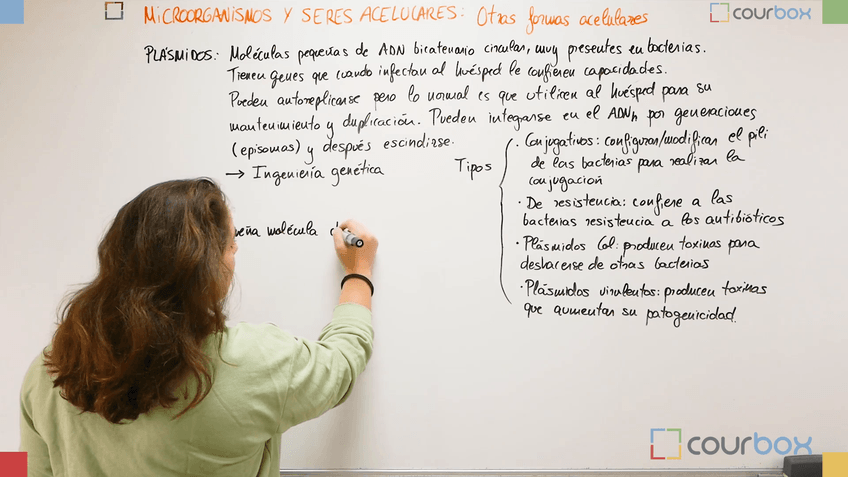 MICROORGANISMOS Y SERES ACELULARES: Otras formas acelulares
courbox
PLÁSMIDOS: Moléculas pequeñas de ADN bicatenario circular, muy presentes en bacterias.
Tienen genes que cuando infectan al huésped le confieren capacidades.
Pueden autoreplicarse pero lo normal es que utilicen al huésped para su
mantenimiento y duplicación. Pueden integrarse en el ADNh por generaciones
(episomas) y después escindirse.
→ Ingeniería genética
Tipos
· Conjugativos: configuran/modifican el pili
de las bacterias para realizar la
conjugación
· De resistencia: confiere a las
bacterias resistencia a los antibióticos
· Plásmidos Col: producen toxinas para
deshacerse de otras bacterias
· Plásmidos virulentos: producen toxinas
que aumentan su patogenicidad.
ueña molécula d
courbox